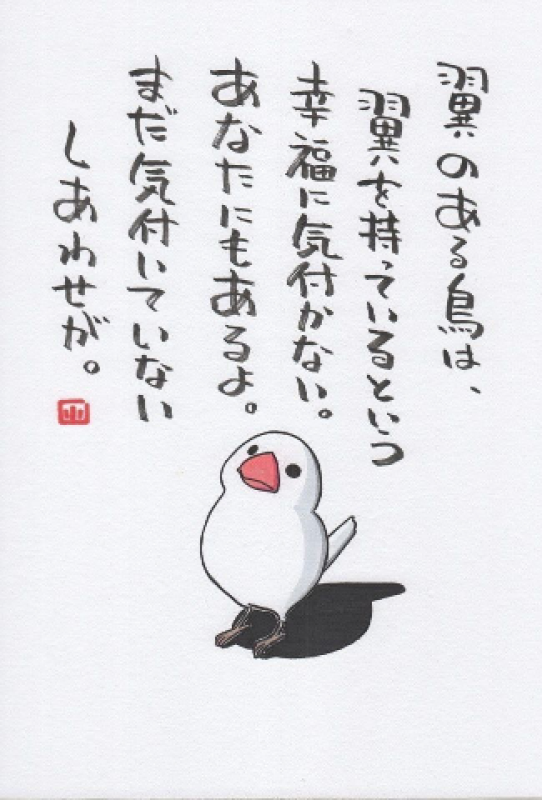 翼のある鳥は、
翼を持っているという
幸福に気付かない。
あなたにもあるよ。
まだ気付いていない
しあわせが。